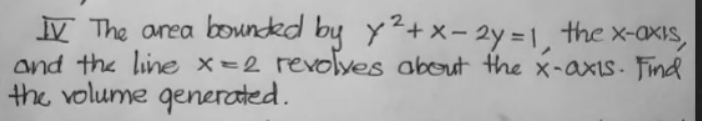 IV The area bounded by y²+x-2y=1, the x-axis,
and the line x=2 revolves about the x-axis. Find
the volume generated.